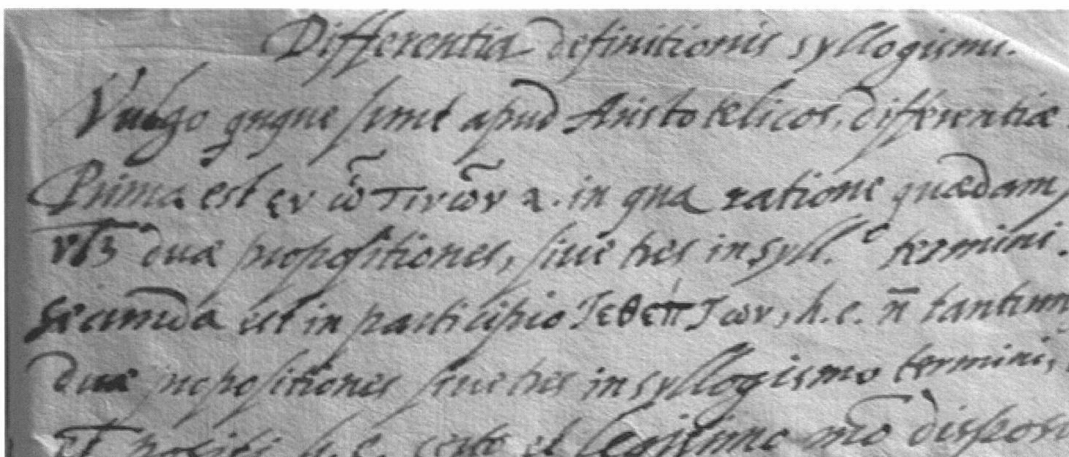 Differentia definitionis syllogismi.
Vulgo quque sunt apud Aristotelicos, differentiæ.
Prima est εν ὧ τινῶν λ. in qua ratione quædam
vtꝫ duæ propositiones, siue tres in syll.º termini.
Secunda est in participio τεθέντων, h.e. n̄ tantum
duæ propositiones siue tres in syllogismo termini,
et positi h.e. certo et legitimo mō disposi